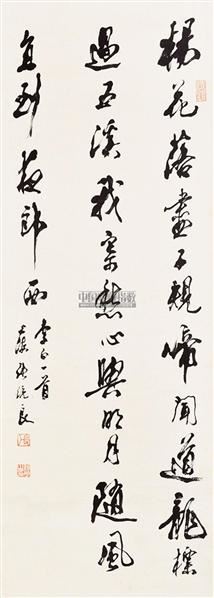 楊花落盡子規啼聞道龍標
過五溪我寄愁心與明月隨風
直到夜郎西
李白一首